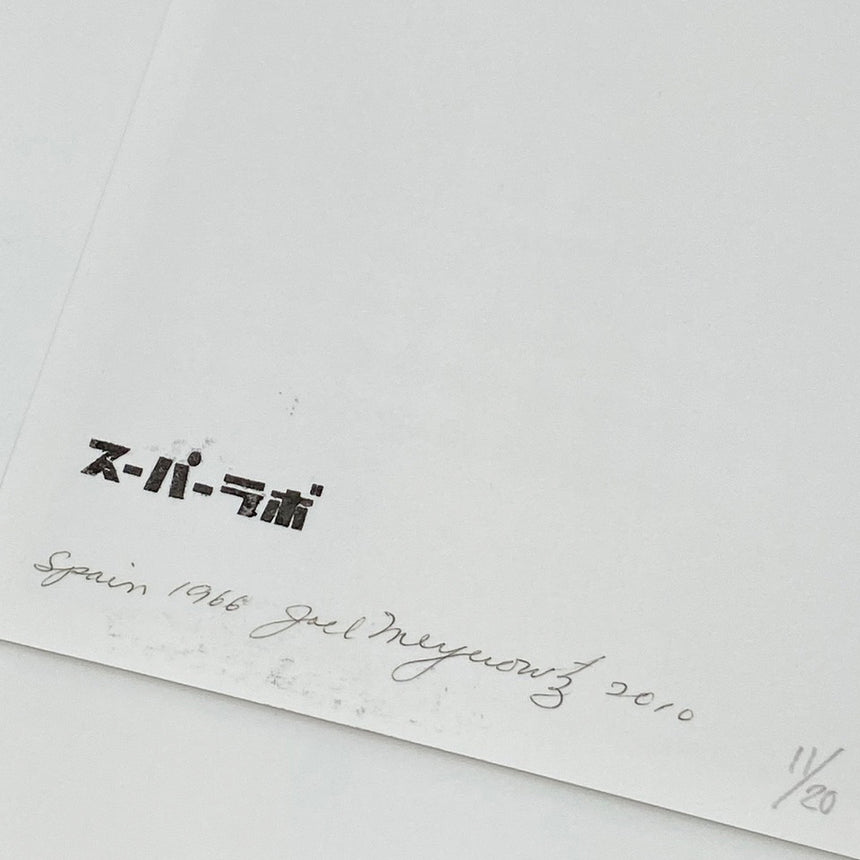 スーパーラボ
Spain 1966 Joel Meyerowitz 2010
11/20